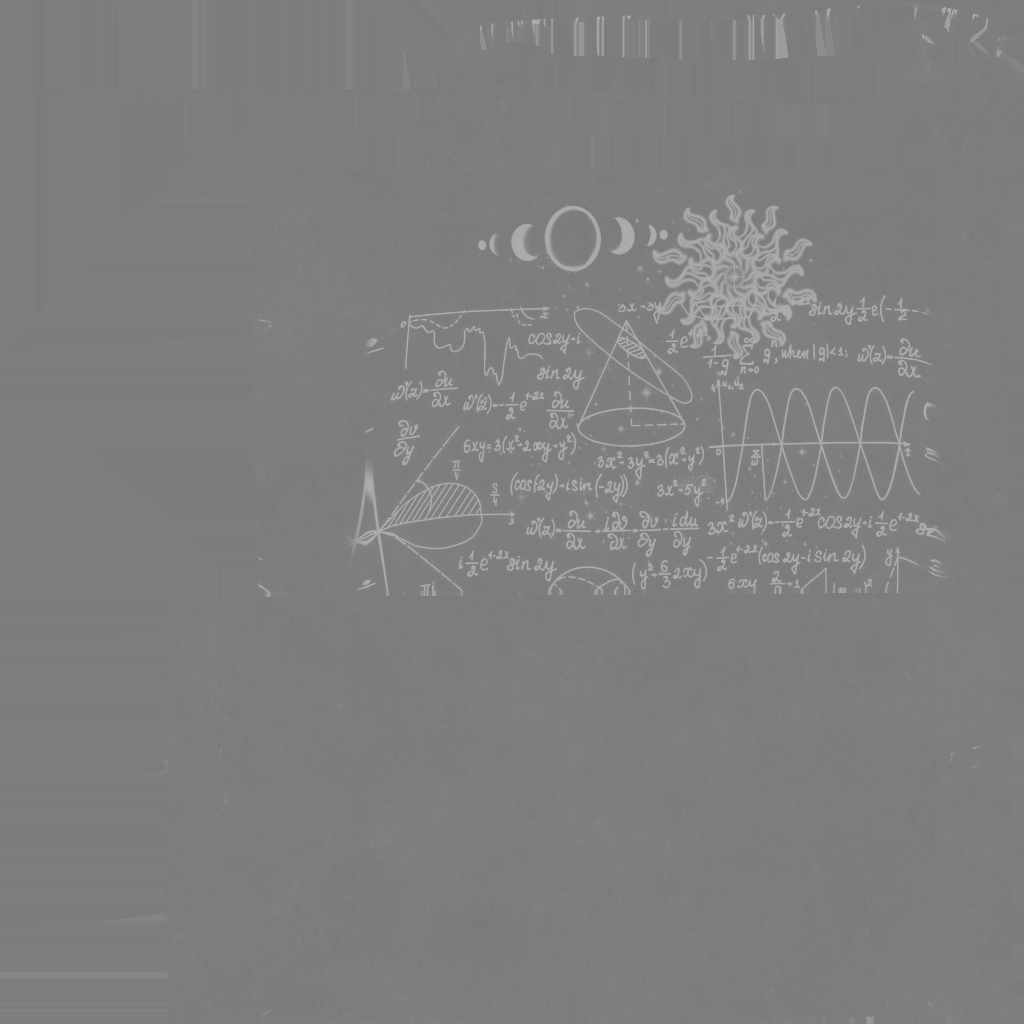 3x+3y
sin 2y 1/2 e(-1/2
0 x
cos 2y-i
1/2 e
1/(1-q) ∞ Σ n=0 qⁿ, when |q|<1;
w'(z)=∂u/∂x
sin 2y
w'(z)=∂u/∂x
w'(z)=-1/2 e^(1-2x)
∂u/∂x
u₁,u₂
∂v/∂y
6xy=3(x²-2xy-y²)
0 π/ω t
3x²-3y²=3(x²-y²)
π/4
S/4
(cos(2y)-i sin(-2y))
3x²+5y²
x
w'(z)=∂u/∂x+i∂v/∂x=∂v/∂y-i∂u/∂y
3x²
w'(z)=-1/2 e^(1-2x) cos 2y-i 1/2 e^(1-2x)
i 1/2 e^(1-2x) sin 2y
(y²+6/3 2xy)
-1/2 e^(1-2x)(cos 2y-i sin 2y)
y
6xy